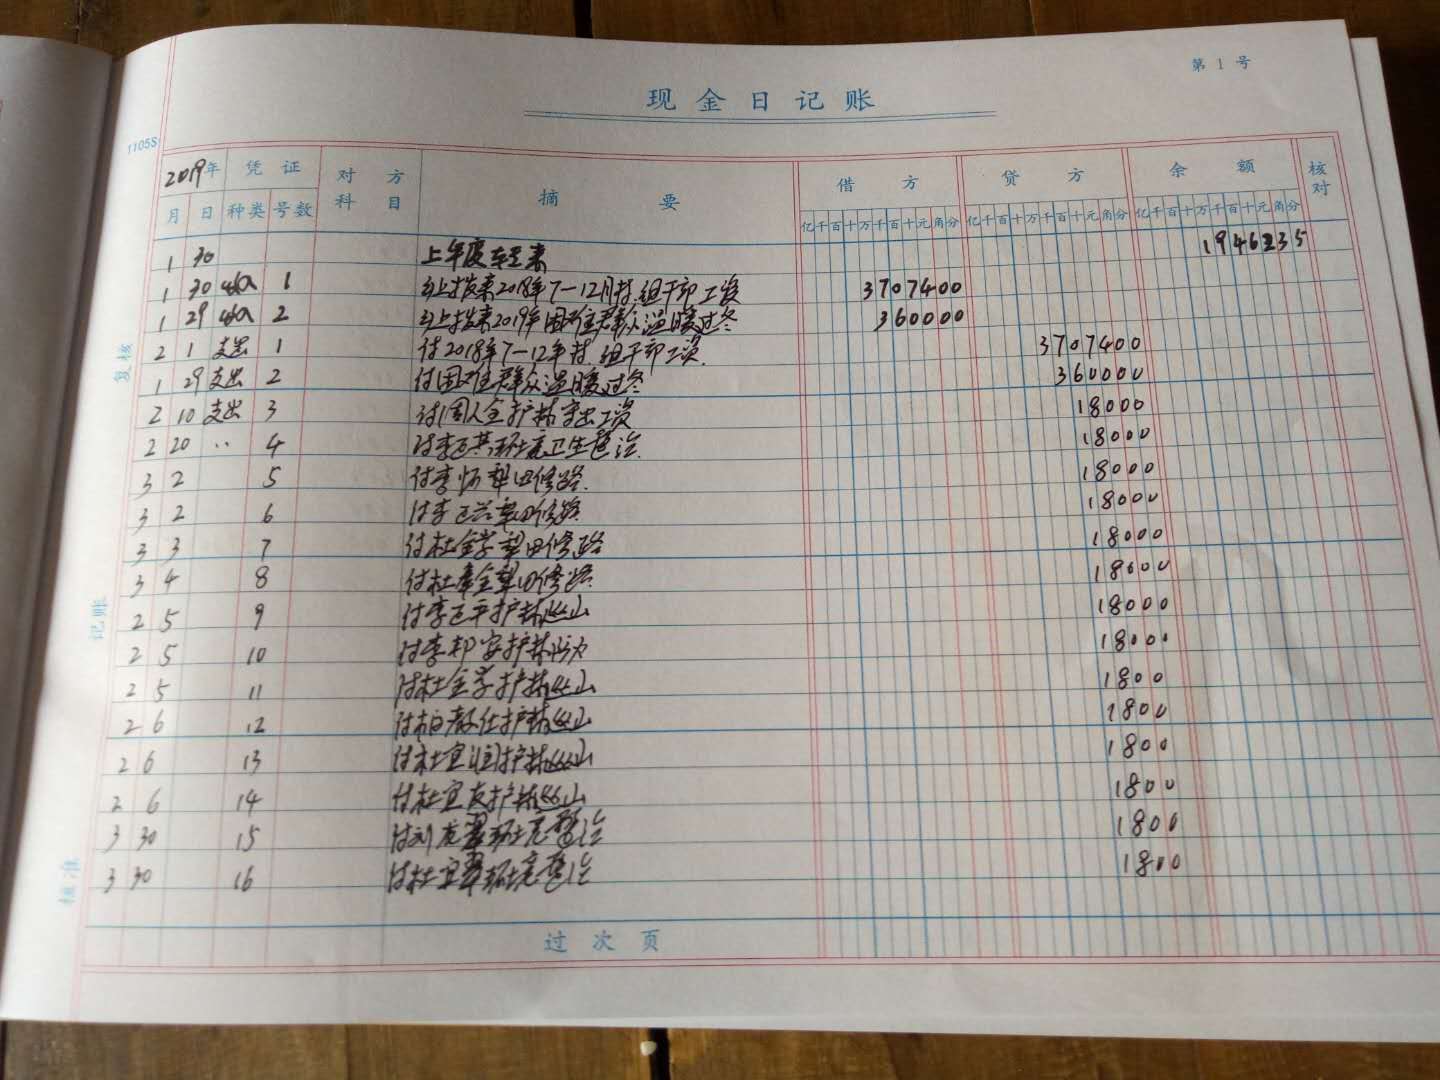 第 1 号
现金日记账
1105S
2019年 凭证 对方科目 摘要 借方 贷方 余额 核对
月 日 种类 号数 亿千百十万千百十元角分 亿千百十万千百十元角分 亿千百十万千百十元角分
1 30 上年度转来 1946235
1 30 收入 1 乡上拨来2018年7—12月村.组干部工资 3707400
1 29 收入 2 乡上拨来2019年困难群众温暖过冬 360000
2 1 支出 1 付2018年7—12年村.组干部工资. 3707400
1 29 支出 2 付困难群众温暖过冬 360000
2 10 支出 3 付周人全护林守出工资 18000
2 20 〃 4 付李正其环境卫生整治. 18000
3 2 5 付李怀犁田修路. 18000
3 2 6 付李正兴犁田修路 18000
3 3 7 付杜金学犁田修路 18000
3 4 8 付杜奉全犁田修路 18000
2 5 9 付李正平护林巡山 18000
2 5 10 付李邦安护林防火 18000
2 5 11 付杜金学护林巡山 1800
2 6 12 付柏教仕护林巡山 1800
2 6 13 付杜宜护林巡山 1800
2 6 14 付杜宜友护林巡山 1800
3 30 15 付刘龙翠环境整治 1800
3 30 16 付杜宜翠环境整治 1800
过次页
复核
记账
核准